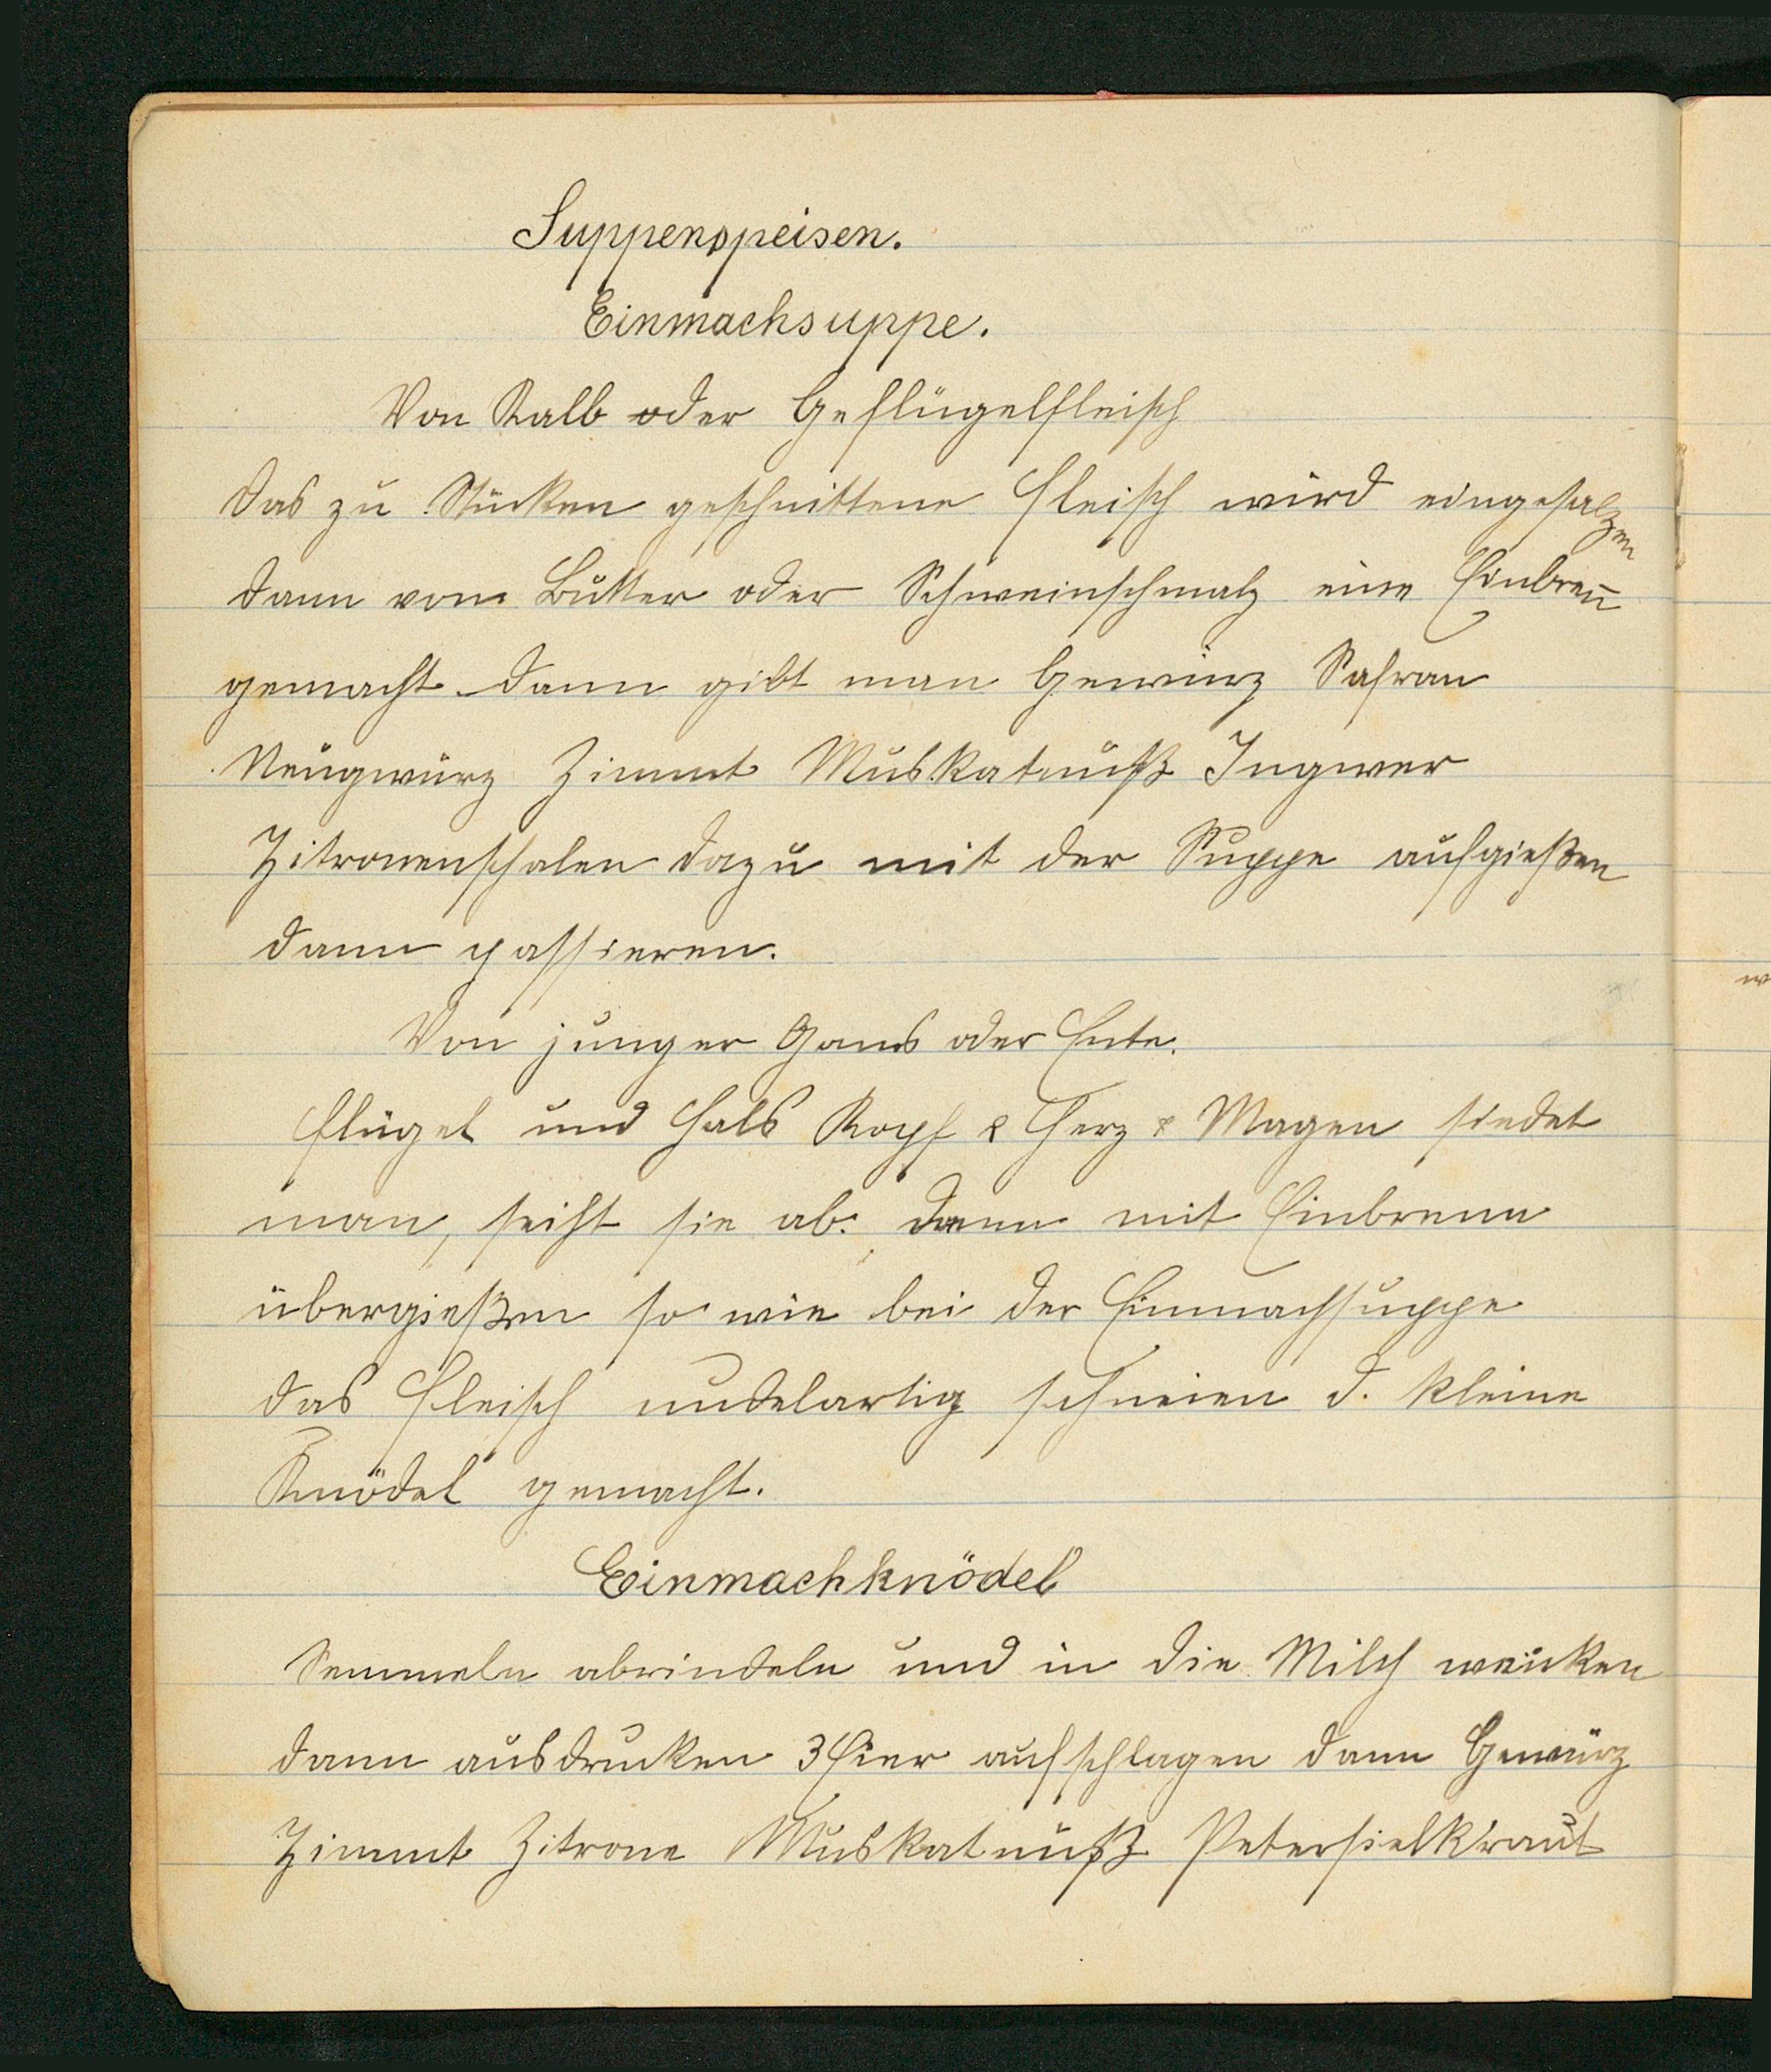 Suppenspeisen.
Einmachsuppe.
Von Kalb oder Geflügelfleisch
Das zu Stücken geschnittene Fleisch wird eingesalzen
dann von Butter oder Schweinschmalz eine Einbren̅
gemacht dann gibt man Gewürz Safran
Neugwürz Zimmt Muskatnuß Ingwer
Zitronenschalen dazu mit der Suppe aufgießen
dann passieren.
Von junger Gans oder Ente.
Flügel und Hals Kopf & Herz & Magen siedet
man, seiht sie ab. dann mit Einbrenn
übergießen so wie bei der Einmachsuppe
das Fleisch nudelartig schneien d. kleine
Knödel gemacht.
Einmachknödel
Semmeln abrindeln und in die Milch weicken
dann ausdrucken 3 Eier aufschlagen dann Gewürz
Zimmt Zitrone Muskatnuß Petersielkraut